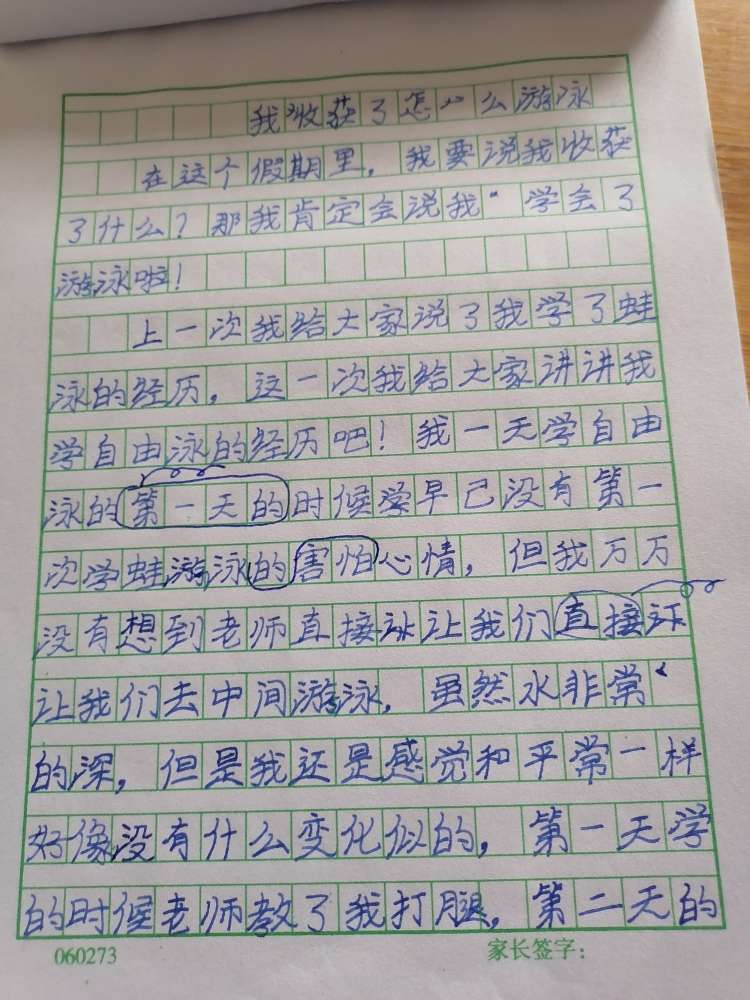 我收获了怎么游泳
在这个假期里，我要说我收获
了什么？那我肯定会说我“学会了
游泳啦！
上一次我给大家说了我学了蛙
泳的经历，这一次我给大家讲讲我
学自由泳的经历吧！我一天学自由
泳的第一天的时候学早已没有第一
次学蛙游泳的害怕心情，但我万万
没有想到老师直接让我们直接
让我们去中间游泳，虽然水非常
的深，但是我还是感觉和平常一样
好像没有什么变化似的，第一天学
的时候老师教了我打腿，第二天的
060273 家长签字：